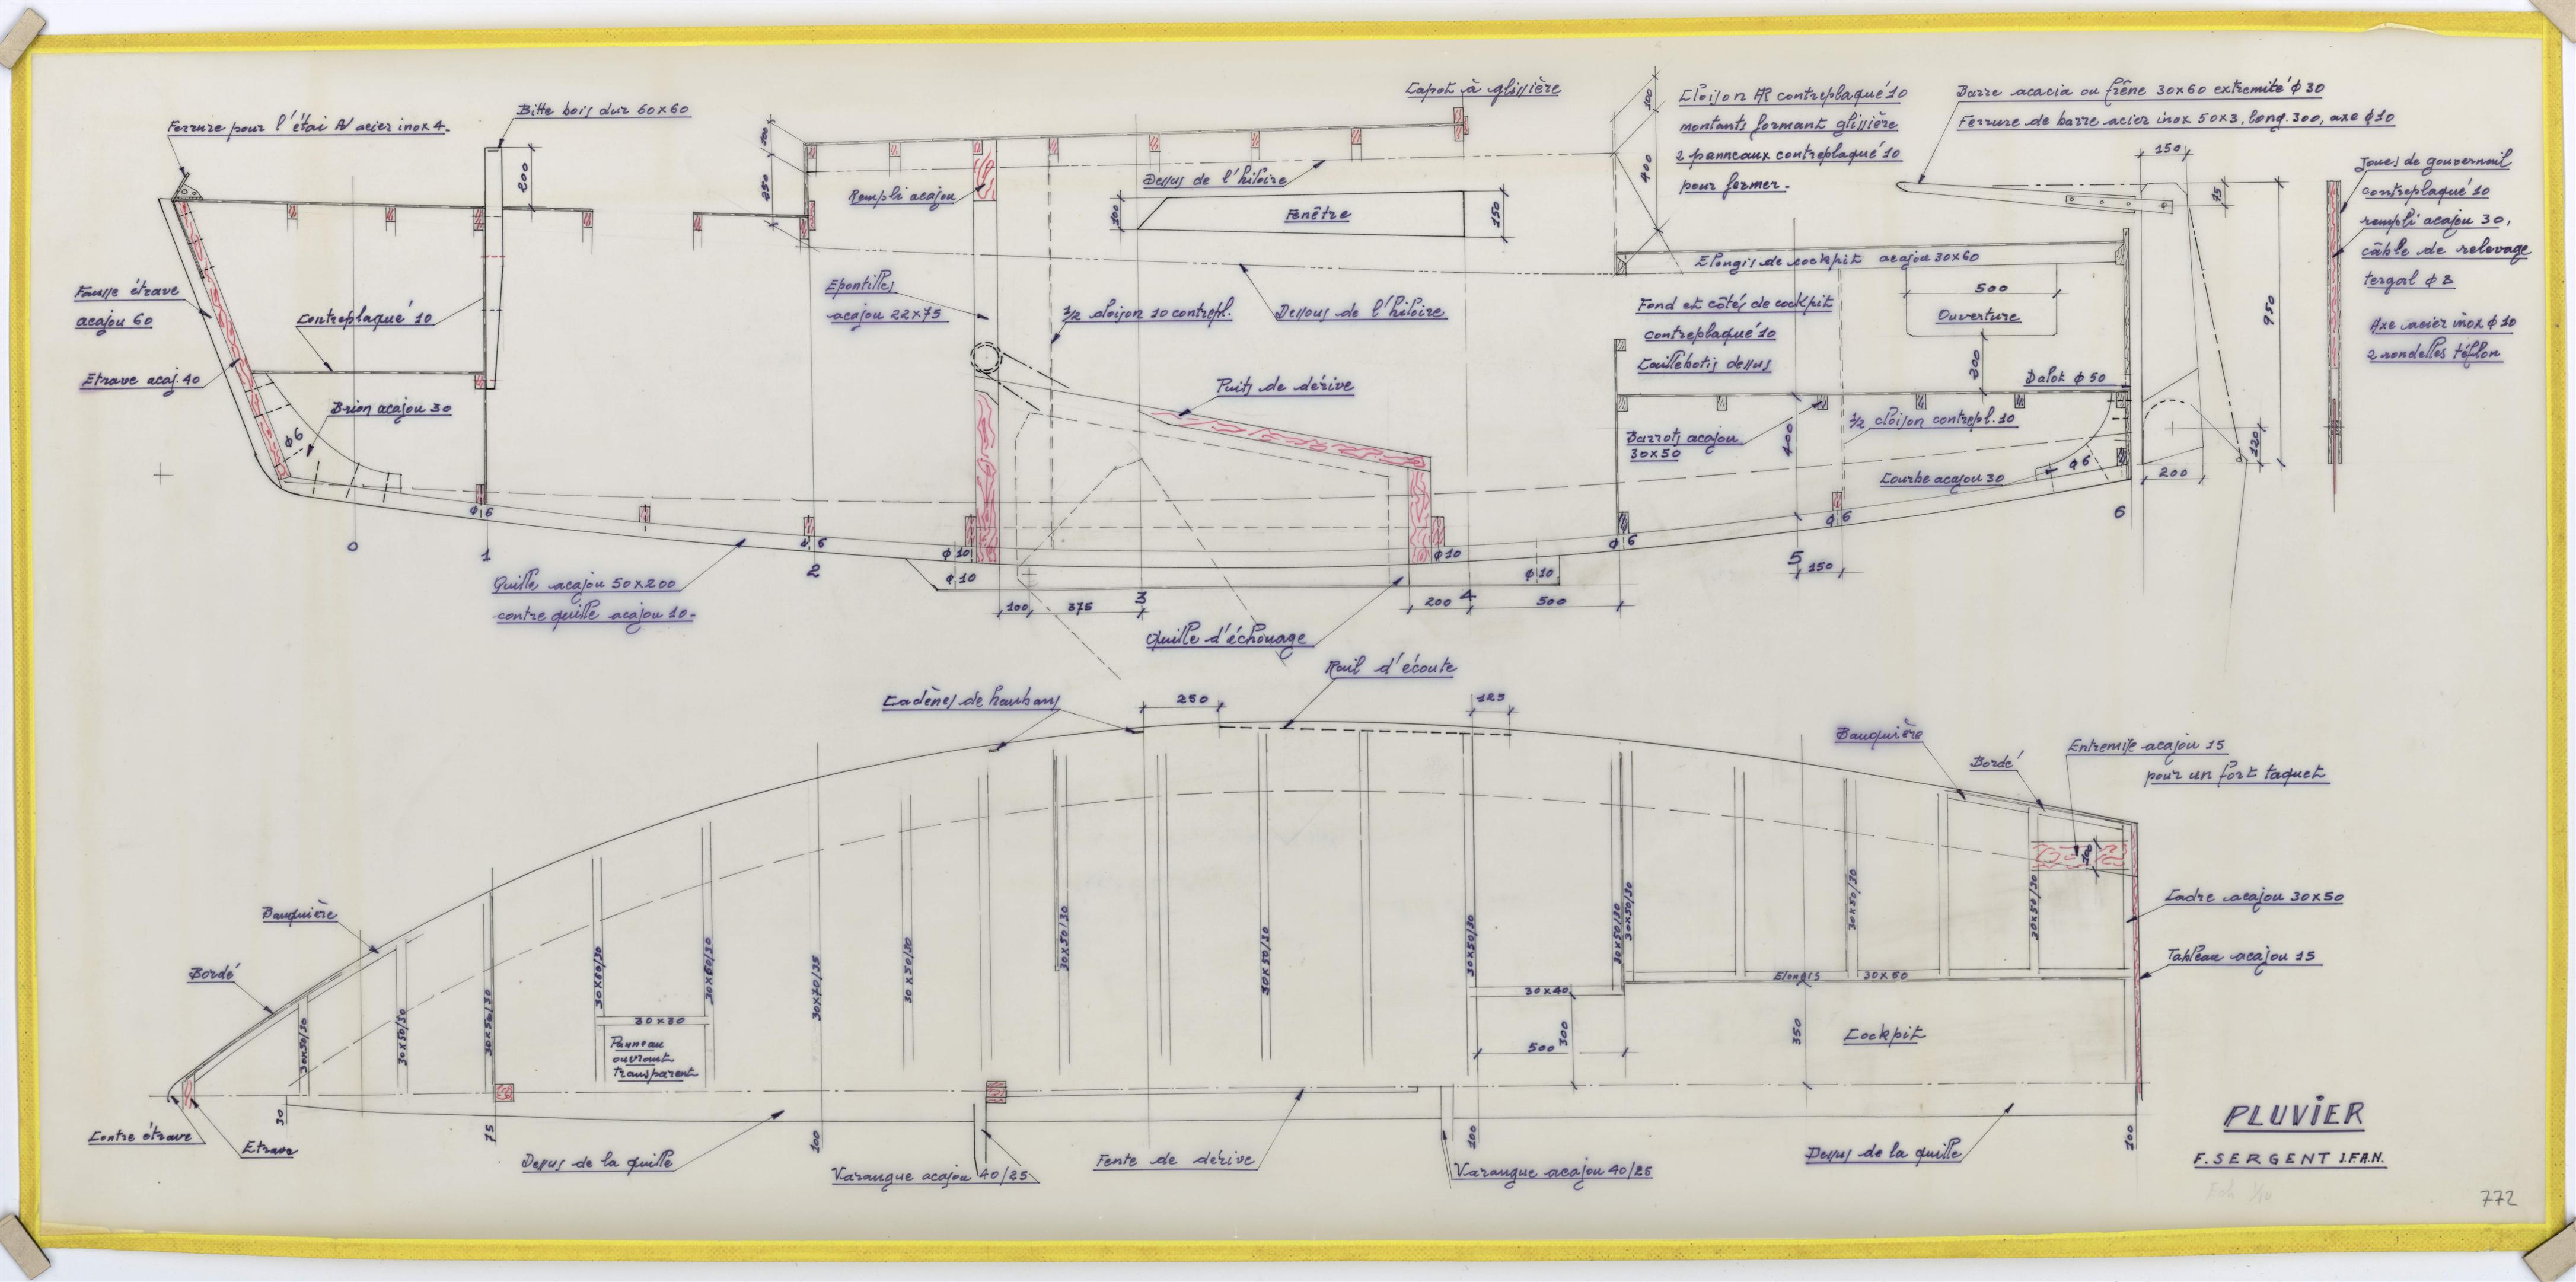 Ferrure pour l'étai AV acier inox 4.
Bitte bois dur 60x60
200
Fausse étrave
acajou 60
Etrave acaj. 40
Contreplaqué 10
Brion acajou 30
φ6
φ6
0
1
2
3
4
5
6
Quille acajou 50x200
contre quille acajou 10-
350
Rempli acajou
Epontilles
acajou 22x75
Capot à glissière
Dessus de l'hiloire
100
Fenêtre
150
1/2 cloison 10 contrepl.
Dessous de l'hiloire
Puits de dérive
φ6
φ10
φ10
φ10
φ10
100
375
200
500
Quille d'échouage
100
400
Cloison AR contreplaqué 10
montants formant glissière
2 panneaux contreplaqué 10
pour fermer-
Barre acacia ou frêne 30x60 extremité φ30
Ferrure de barre acier inox 50x3, long. 300, axe φ10
150
75
950
120
200
Joues de gouvernail
contreplaqué 10
rempli acajou 30,
câble de relevage
tergal φ8
Axe acier inox φ10
2 rondelles téflon
Elongis de cockpit acajou 30x60
Fond et côtés de cockpit
contreplaqué 10
Caillebotis dessus
500
Ouverture
200
Dalot φ50
Barrots acajou
30x50
400
1/2 cloison contrepl. 10
Courbe acajou 30
φ6
φ6
φ6
150
Rail d'écoute
Cadènes de haubans
250
125
Bauquière
Bordé
Entremise acajou 15
pour un fort taquet
100
Cadre acajou 30x50
Tableau acajou 15
Bauquière
Bordé
30x50/30
30x50/30
30x50/30
30x60/30
30x60/30
30x70/35
30x50/30
30x50/30
30x50/30
30x50/30
30x50/30
30x50/30
30x50/30
30x50/30
30x30
Panneau
ouvrant
transparent
30x40
500
300
Elongis 30x60
350
Cockpit
Contre étrave
Etrave
30
75
100
100
100
Dessus de la quille
Varangue acajou 40/25
Fente de dérive
Varangue acajou 40/25
Dessus de la quille
PLUVIER
F. SERGENT I.F.A.N.
Ech 1/10
772